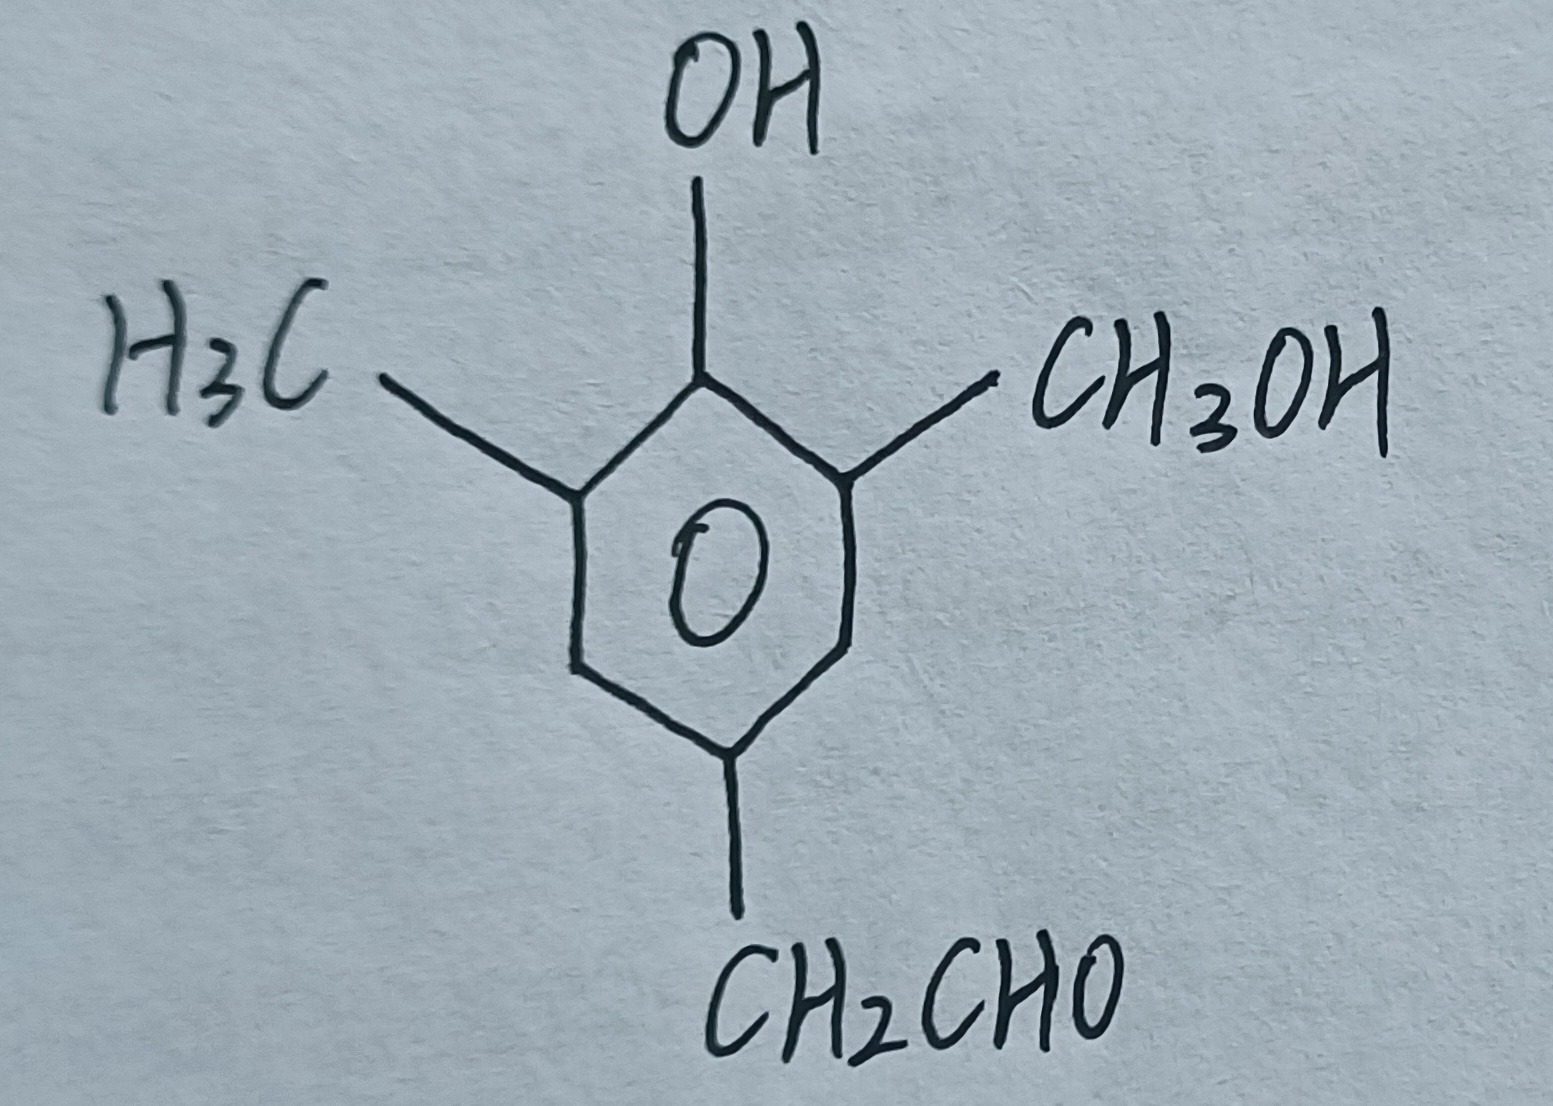 OH
H₃C
CH₃OH
CH₂CHO